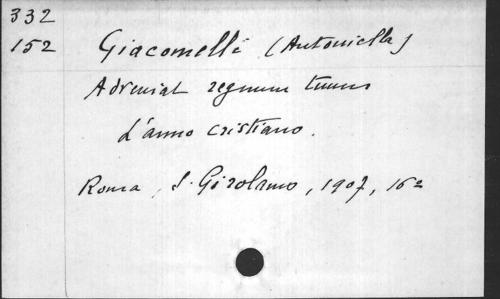 332
152
Giacomelli (Antonietta)
Adveniat regnum tuum
L'anno cristiano.
Roma, S. Girolamo, 1907, 16º